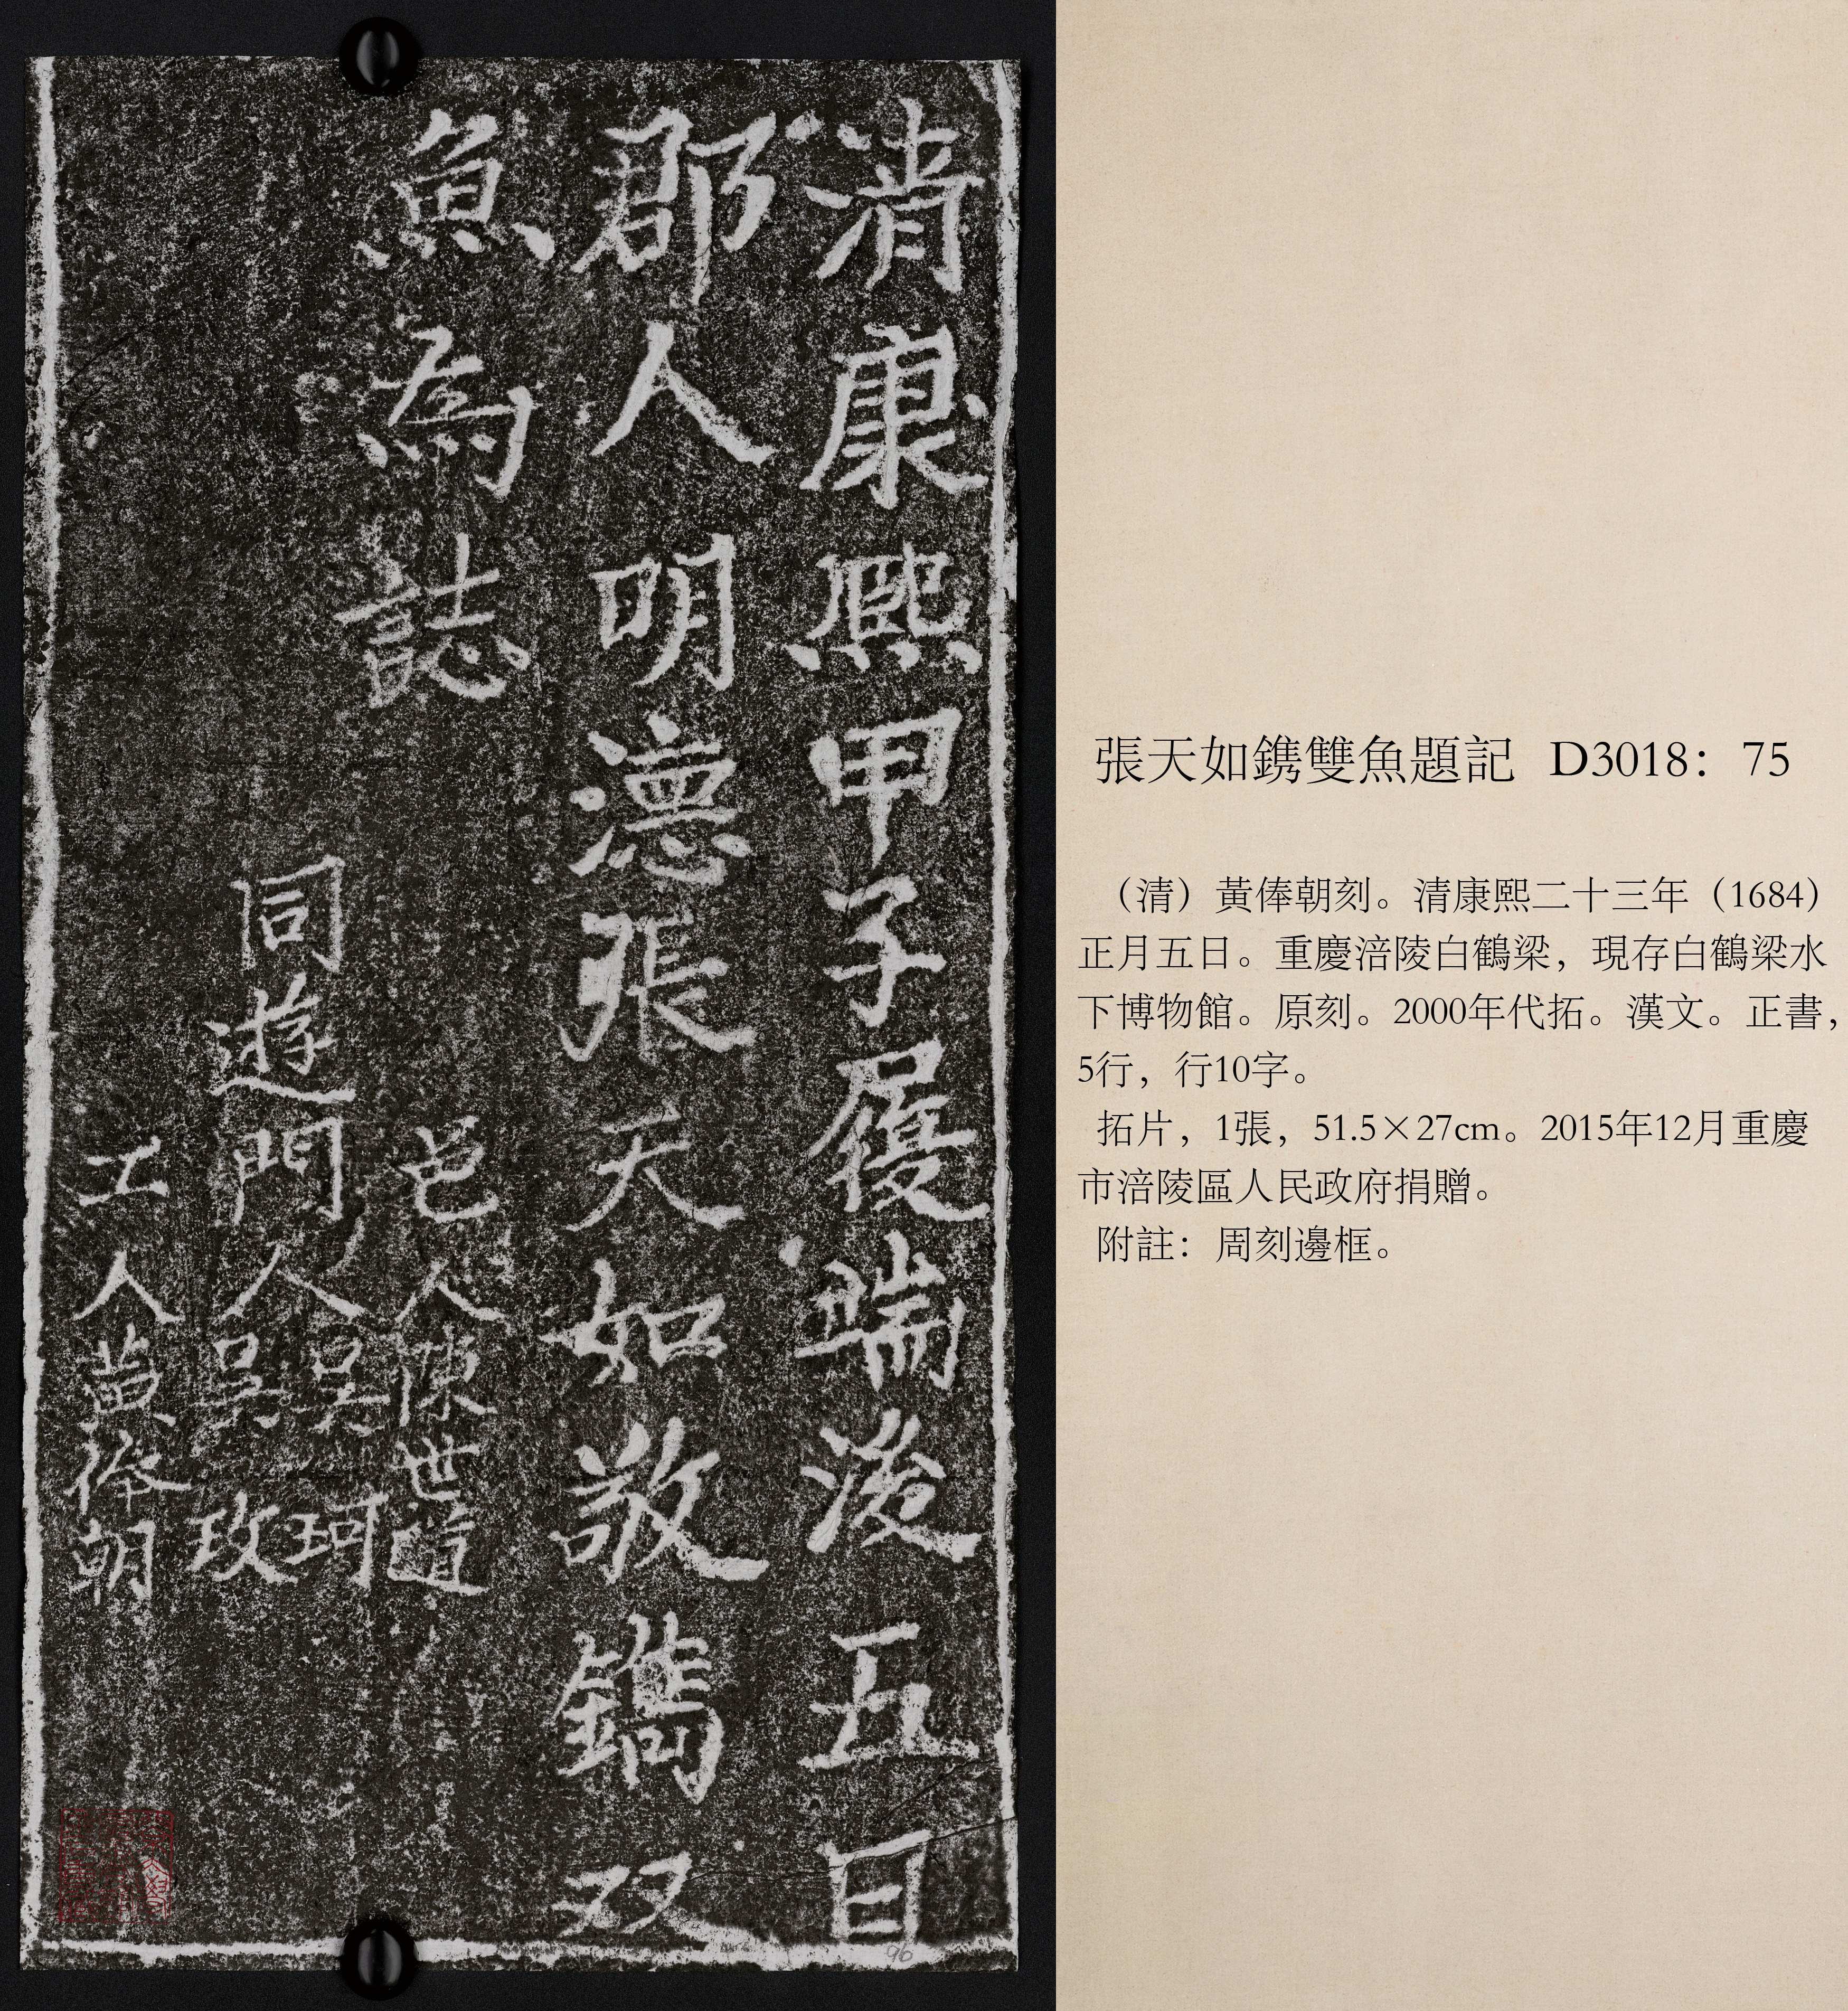 清康熙甲子履端後五日
郡人明德張天如敬鐫双
魚為誌
邑人陳世道
同遊門人吴珂
吴玫
工人黄俸朝
張天如鐫雙魚題記 D3018：75
（清）黃俸朝刻。清康熙二十三年（1684）
正月五日。重慶涪陵白鶴梁，現存白鶴梁水
下博物館。原刻。2000年代拓。漢文。正書，
5行，行10字。
拓片，1張，51.5×27cm。2015年12月重慶
市涪陵區人民政府捐贈。
附註：周刻邊框。
96